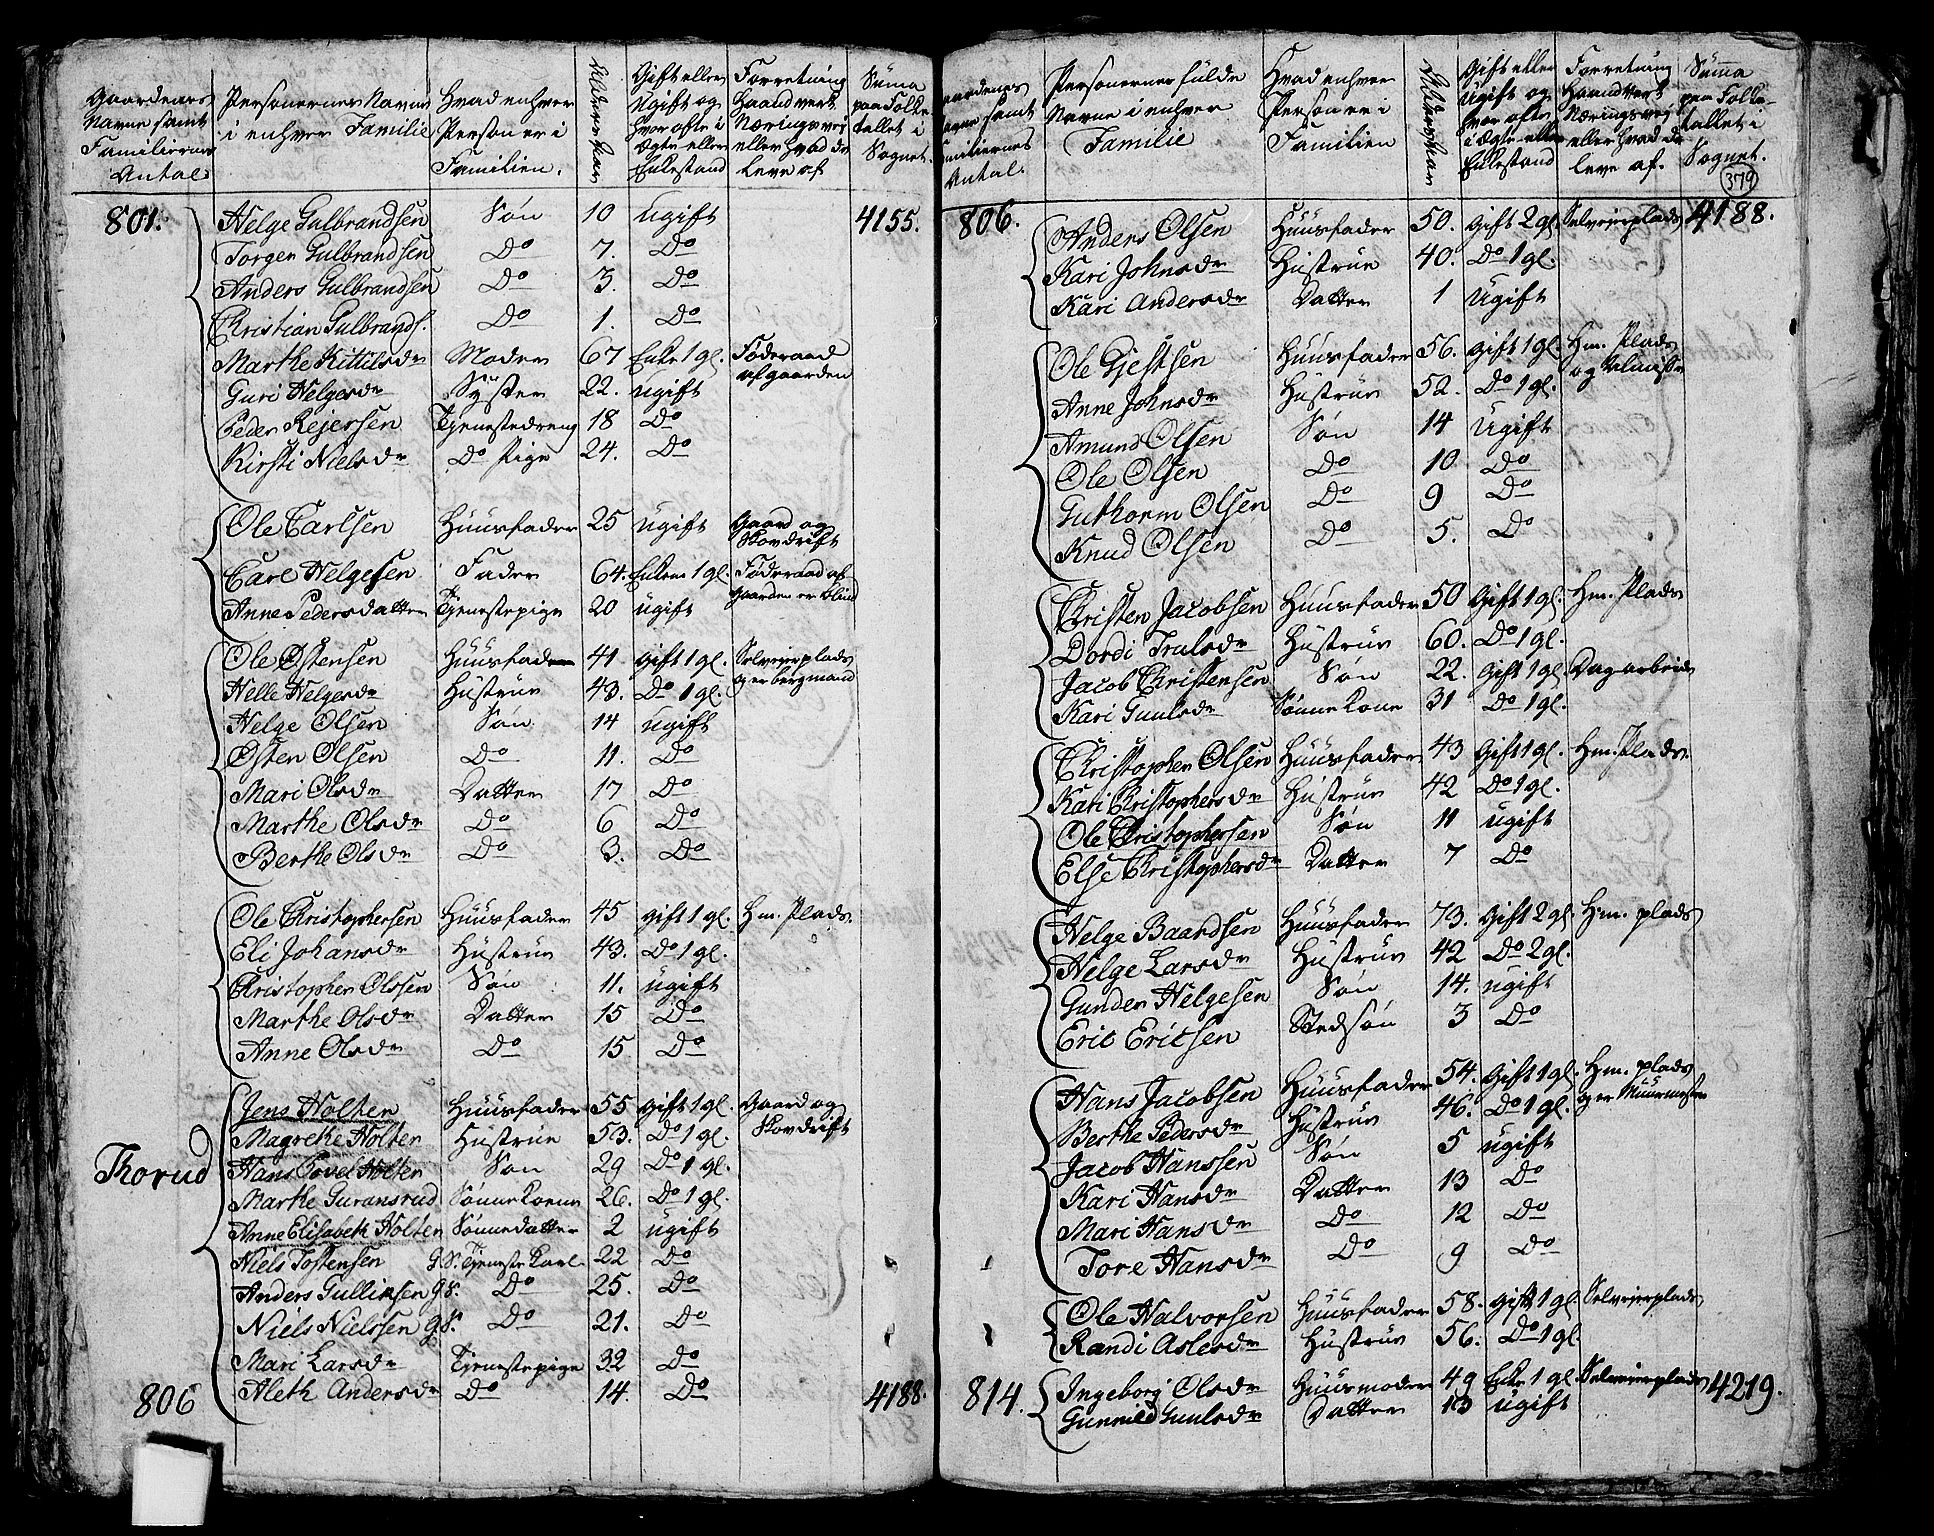 Gaardenes Navne samt Familiernes Antal. Personernes Navne i enhver Familie Hvad enhver Person er i Familien. Alders Aar Gift eller Ugift og hvor ofte i Ægte eller Enkestand Forretning Haandverk Næringsvej eller hvad de leve af Suma paa Folketallet i Sognet.
801. Helge Gulbrandsen Søn 10 ugift 4155.
Torger Gulbrandsen Do 7. Do
Anders Gulbrandsen Do 3. Do
Christian Gulbrands. Do 1. Do
Marthe Kittilsdr Moder 67 Enke 1 gl. Føderaad af gaarden
Guri Helgesdr Syster 22. ugift
Peder Rejersen Tjenestedreng 18 Do
Kirsti Nielsdr Do Pige 24. Do
Ole Carlsen Huusfader 25 ugift Gaard og Skovdrift
Carl Helgesen Fader 64. Enkem 1 gl. Føderaad af Gaarden er blind
Anne Pedersdatter Tjenestepige 20 ugift
Ole Østensen Huusfader 41. gift 1 gl. Selvejerplads og er bergmand
Helle Helgesdr Hustrue 43. Do 1 gl.
Helge Olsen Søn 14 ugift
Østen Olsen Do 11. Do
Mari Olsdr Datter 17 Do
Marthe Olsdr Do 6 Do
Berthe Olsdr Do 3. Do
Ole Christophersen Huusfader 45 gift 1 gl. Hm. Plads
Eli Johansdr Hustrue 43. Do 1 gl.
Christopher Olssen Søn 11. ugift
Marthe Olsdr Datter 15 Do
Anne Olsdr Do 15 Do
Jens Holten Huusfader 55 gift 1 gl. Gaard og Skovdrift
Magrethe Holten Hustrue 53. Do 1 gl.
Thorud Hans Povel Holten Søn 29 Do 1 gl.
Marthe Guransrud Sønne Koene 26. Do 1 gl.
Anne Elisabeth Holten Sønnedatter 2 ugift
Niels Tostensen G.S. Tjeneste Karl 22 Do
Anders Gullixsen g.S. Do 25. Do
Niels Nielssen g.S. Do 21. Do
Mari Larsdr Tjenestepige 32 Do
806 Aleth Andersdr Do 14. Do 4188.
Gaardenes Navne samt Familiernes Antal. Personernes fulde Navne i enhver Familie Hvad enhver Person er i Familien Alders Aar Gift eller Ugift og hvor ofte i Ægte eller Enkestand Forretning Haandverk Næringsvej eller hvad de leve af. Suma paa Folketallet i Sognet.
379
806. Anders Olsen Huusfader 50. gift 2 gl. Selvejerplads 4188.
Kari Johnsdr Hustrue 40. Do 1 gl.
Kari Andersdr Datter 1 Ugift
Ole Gjestsen Huusfader 56. gift 1 gl. Hm. Plads og
Anne Johnsdr Hustrue 52. Do 1 gl.
Amund Olsen Søn 14 Ugift
Ole Olsen Do 10 Do
Guthorm Olsen Do 9 Do
Knud Olsen Do 5. Do
Christen Jacobsen Huusfader 50 Gift 1 gl. Hm. Plads
Dordi Trulsdr Hustrue 60. Do 1 gl.
Jacob Christensen Søn 22. Gift 1 gl Dagarbeide
Kari Guulsdr Sønne Kone 31 Do 1 gl.
Christopher Olsen Huusfader 43 Gift 1 gl. Hm. Plads
Kari Christophersdr Hustrue 42 Do 1 gl.
Ole Christophersen Søn 11 ugift
Else Christophersdr Datter 7 Do
Helge Baardsen Huusfader 73. Gift 2 gl. Hm. plads
Helge Larsdr Hustrue 42 Do 2 gl.
Gunder Helgesen Søn 14. ugift
Eric Ericsen Stedsøn 3 Do
Hans Jacobsen Huusfader 54. Gift 1 gl. Hm. plads og er Muurmester
Berthe Pedersdr Hustrue 46. Do 1 gl.
Jacob Hanssen Søn 5 ugift
Kari Hansdr Datter 13 Do
Mari Hansdr Do 12 Do
Tore Hansdr Do 9 Do
Ole Halvorsen Huusfader 58. gift 1 gl. Selvejerplads
Randi Aslesdr Hustrue 56. Do 1 gl.
814. Ingeborg Olsdr Huusmoder 49 Enke 1 gl. Selvejerplads 4219.
Gunnild Guulsdr Datter 13 ugift